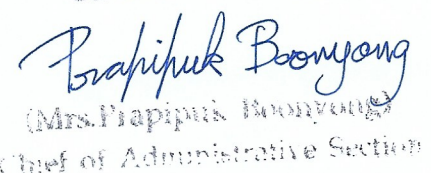 Prapipuk Boonyong
(Mrs.Prapipuk Boonyong)
Chief of Administrative Section